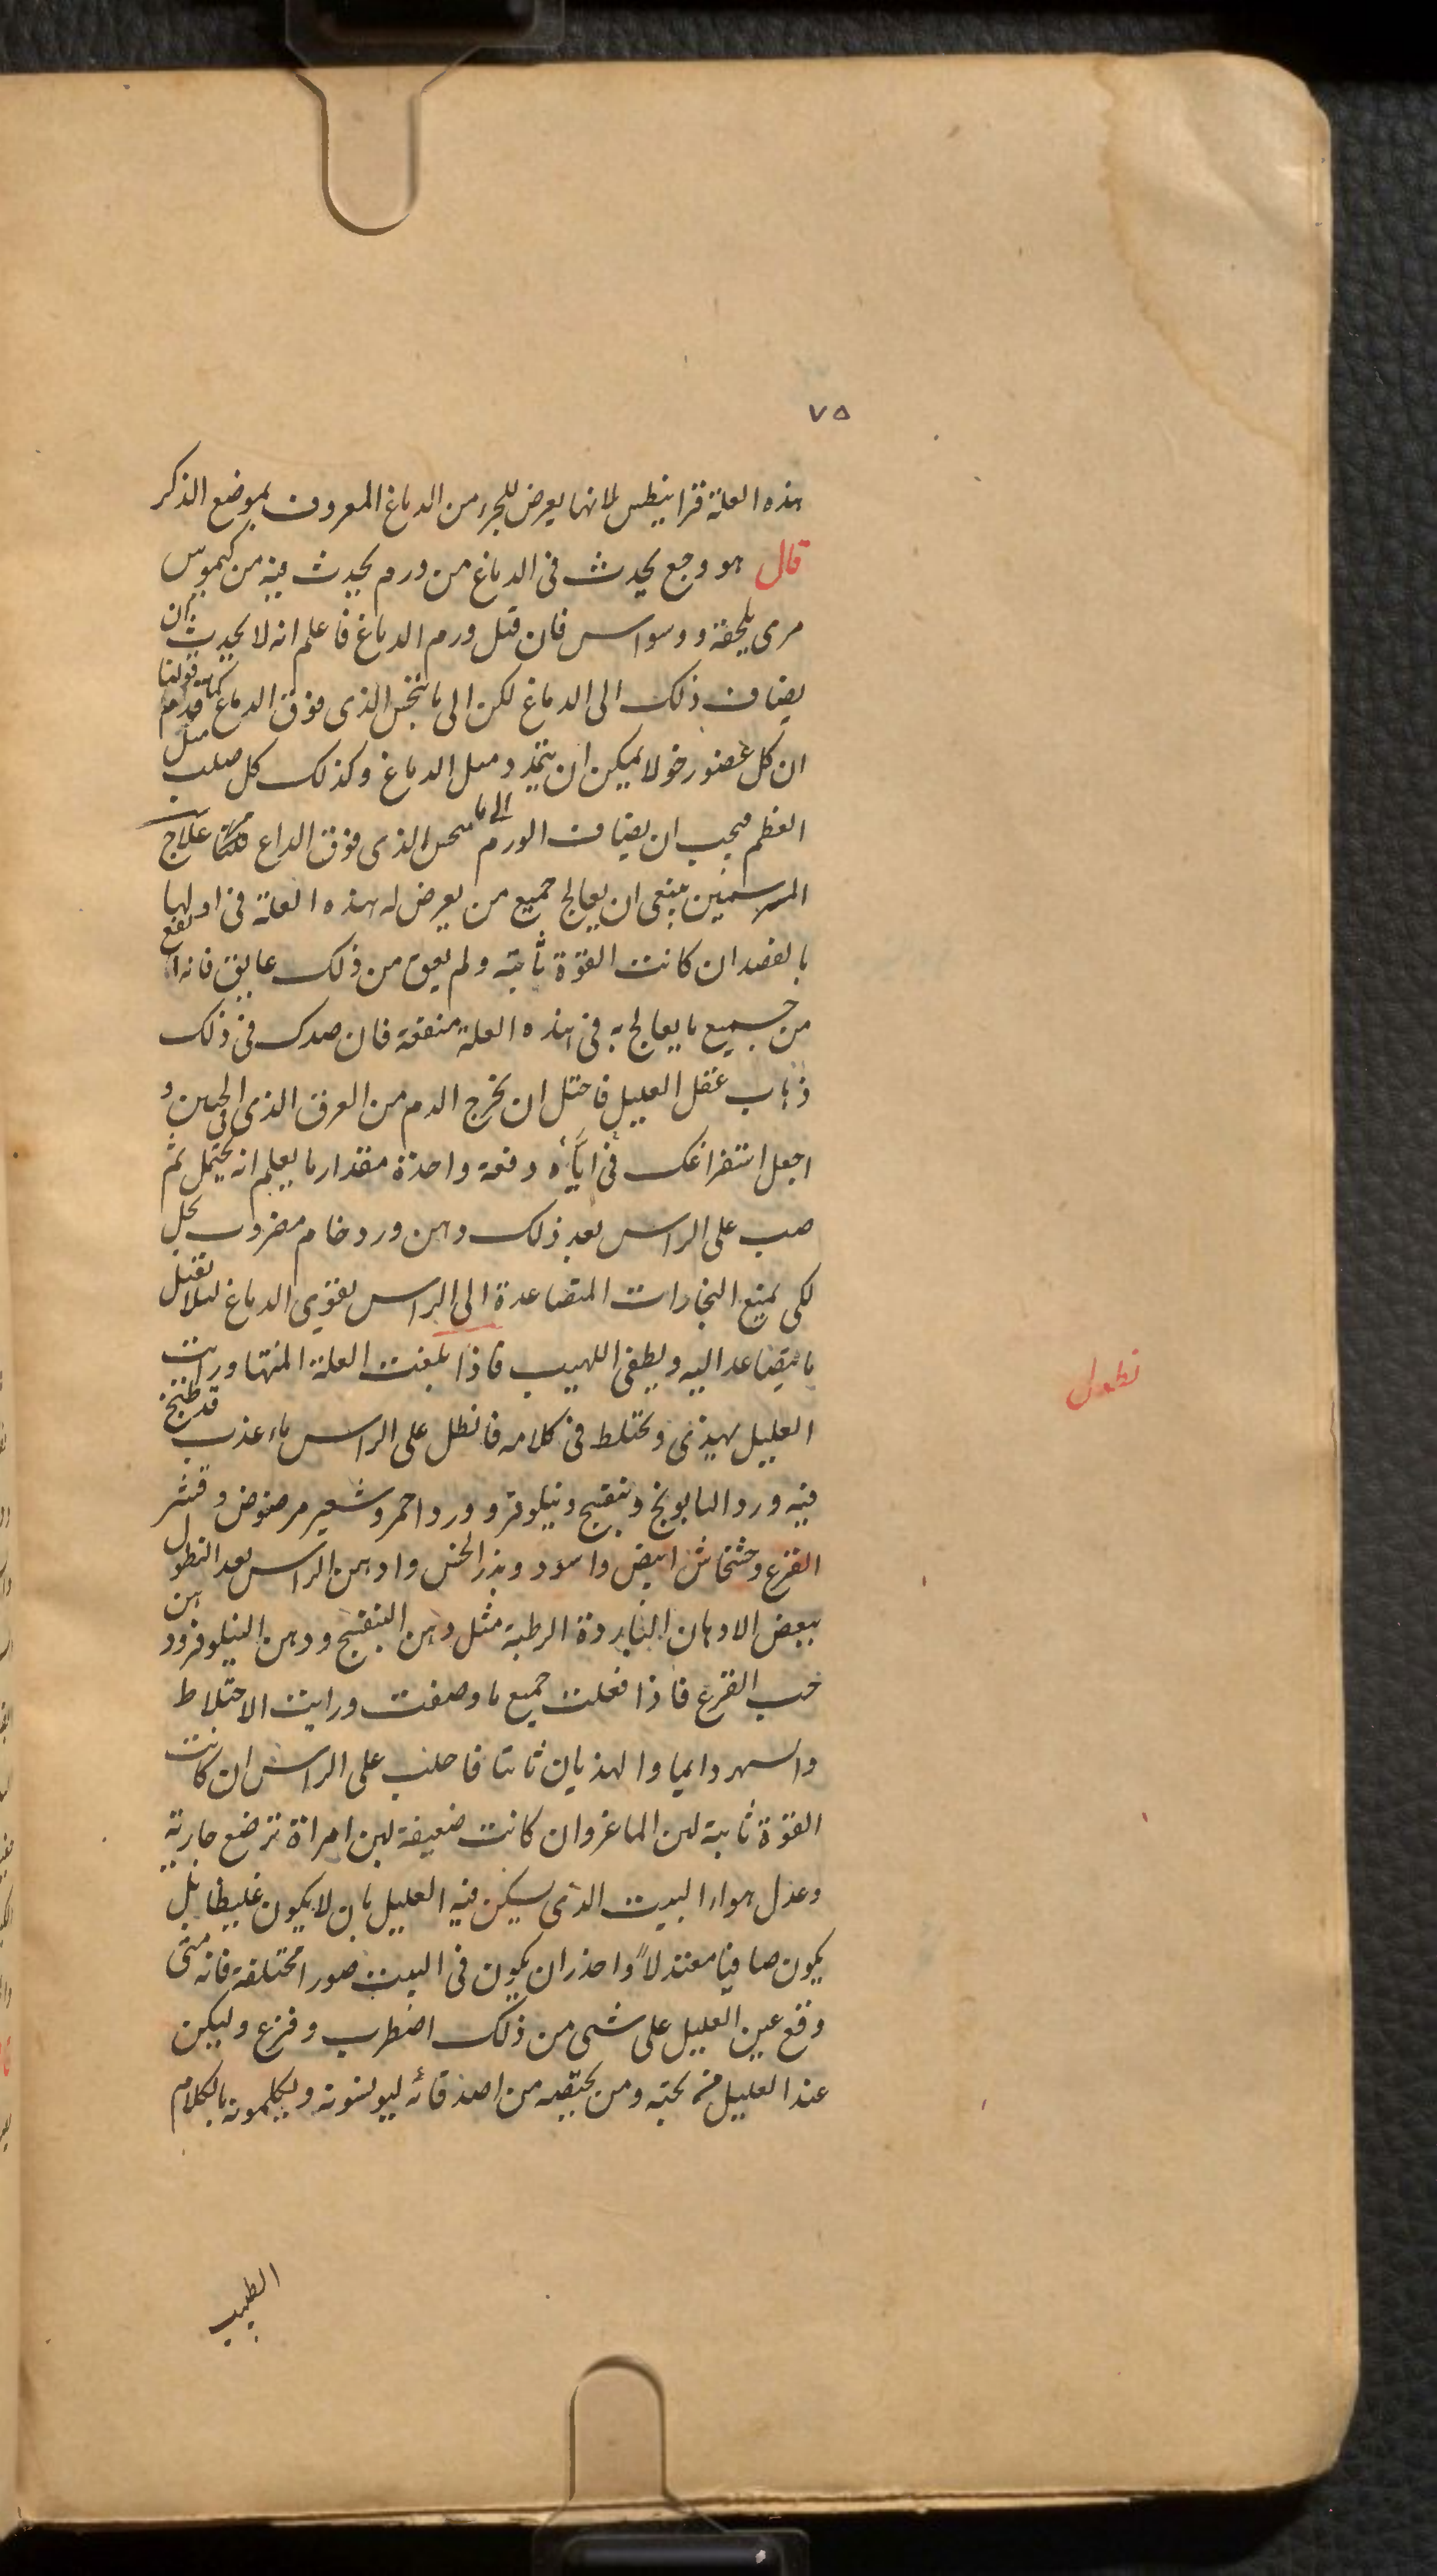 ٧٥
هذه العلة قرانيطس لانها يعرض للجزء من الدماغ المعروف بموضع الذكر
قال هو وجع يحدث فى الدماغ من ورم يحدث فيه من كيموس
مرى يلحقه ووسواس فان قيل ورم الدماغ فاعلم انه لا يحدث ان
يضاف ذلك الى الدماغ لكن الى مانخس الذى فوق الدماغ كما قدم قولنا
ان كل عضو رخو لا يمكن ان يتمدد مثل الدماغ وكذلك كل صلب مثل
العظم فيجب ان يضاف الورم الى مانخس الذى فوق الدماغ علاج
المبرسمين ينبغى ان يعالج جميع من يعرض له هذه العلة فى اولها
بالفصد ان كانت القوة ثابتة ولم يعق من ذلك عايق فانه انفع
من جميع ما يعالج به فى هذه العلة منفعة فان صدك فى ذلك
ذهاب عقل العليل فاحتل ان يخرج الدم من العرق الذى فى الجبين و
اجعل استفراغك فى اياه دفعة واحدة مقدار ما يعلم انه يحتمل ثم
صب على الراس بعد ذلك دهن ورد خام مضروب بخل
لكى يمنع البخارات المتصاعدة الى الراس يقوى الدماغ ليلا تقبل
ما يتصاعد اليه ويطفى اللهيب فاذا بلغت العلة المنتها ورايت
العليل يهذى ويختلط فى كلامه فانطل على الراس ماء عذب قد طبخ
فيه ورد البابونج وبنفسج ونيلوفر وورد احمر وشعير مرضوض وقشر
القرع وخشخاش ابيض واسود وبزر الخس وادهن الراس بعد النطول
ببعض الادهان الباردة الرطبة مثل دهن البنفسج ودهن النيلوفر ودهن
حب القرع فاذا فعلت جميع ما وصفت ورايت الاختلاط
والسهر دايما والهذيان ثابتا فاحلب على الراس ان كانت
القوة ثابتة لبن الماعز وان كانت ضعيفة لبن امراة ترضع جارية
وعدل هواء البيت الذى يسكن فيه العليل بان لا يكون غليظا بل
يكون صافيا معتدلاً واحذر ان يكون فى البيت صورا مختلفة فانه متى
وقع عين العليل على شى من ذلك اضطرب وفزع وليكن
عند العليل من يحبه ومن يحبه من اصدقائه ليونسونه ويكلمونه بالكلام
الطيب
نطول